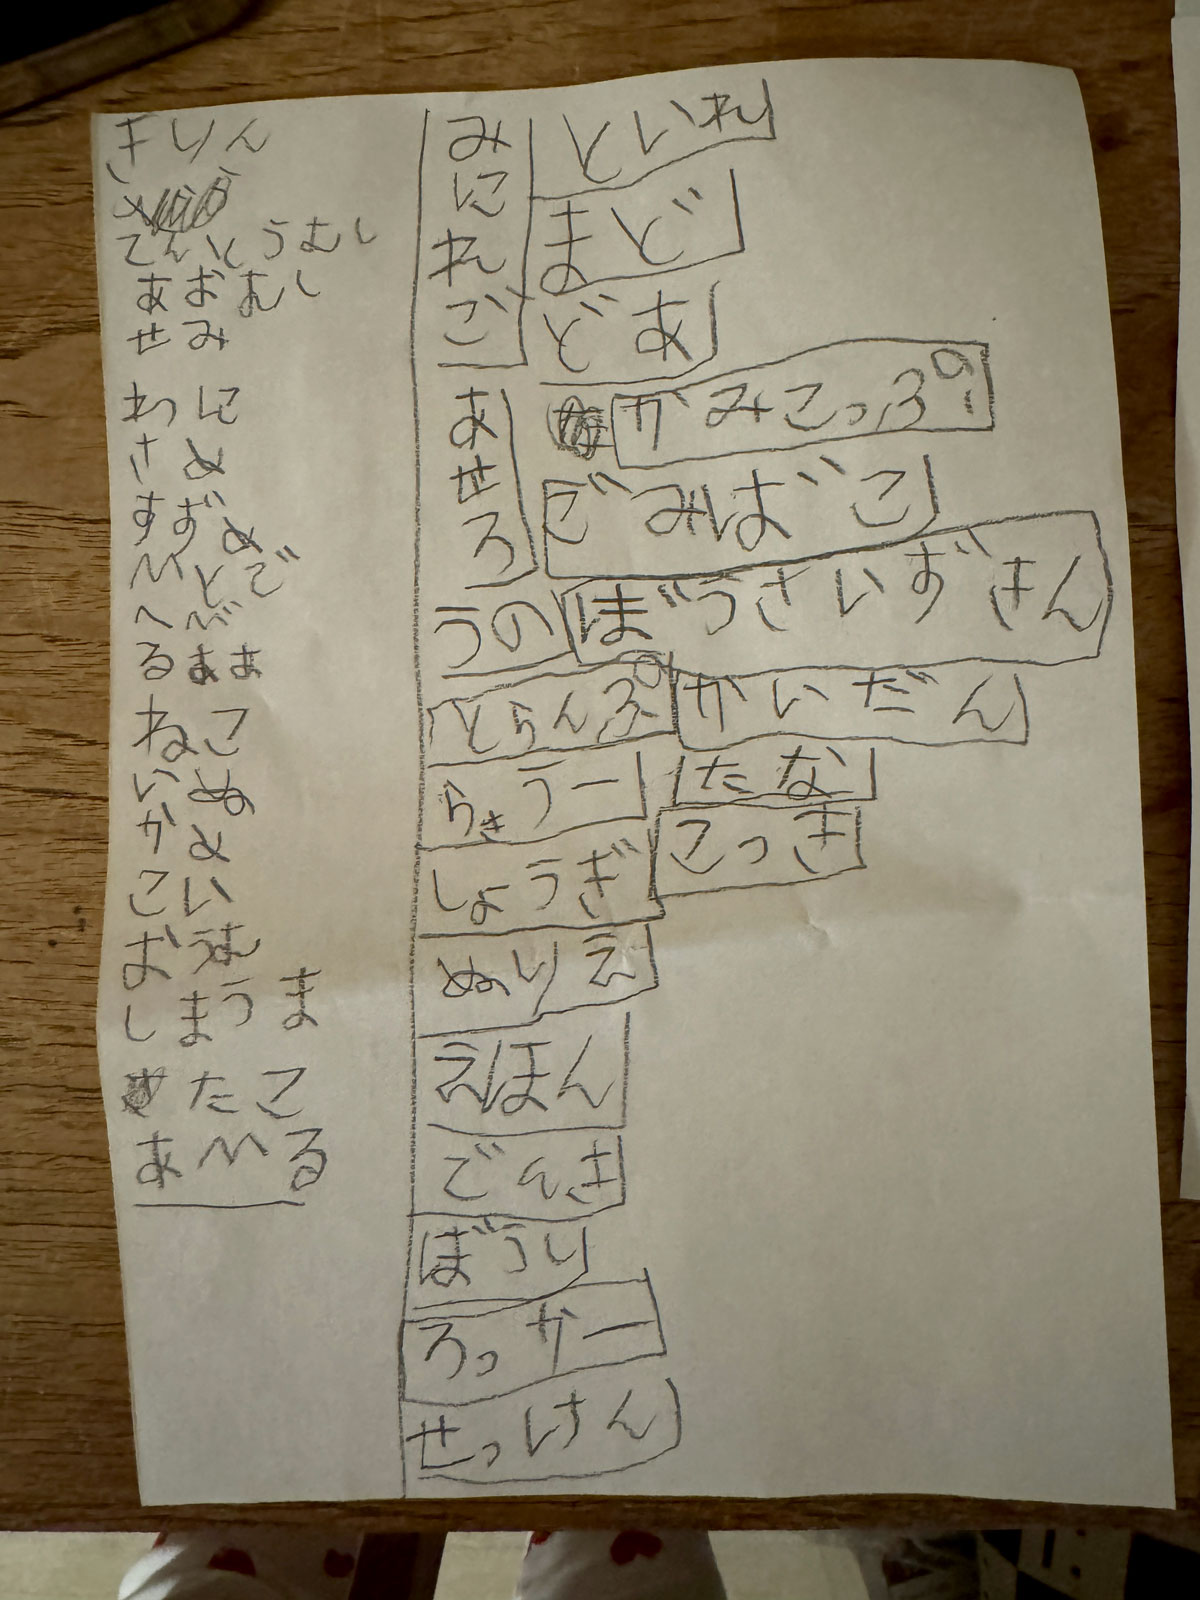 きりん
てんとうむし
あおむし
せみ
わに
さめ
すずめ
へび
ねこ
いぬ
かめ
こい
おうむ
しまうま
たこ
あひる
みにれご
あせろ
うの
とらんぷ
らきうー
しょうぎ
ぬりえ
えほん
でんき
ぼうり
ろっかー
せっけん
といれ
まど
どあ
かみこっぷ
ごみばこ
ぼうさいずきん
かいだん
たな
こっき